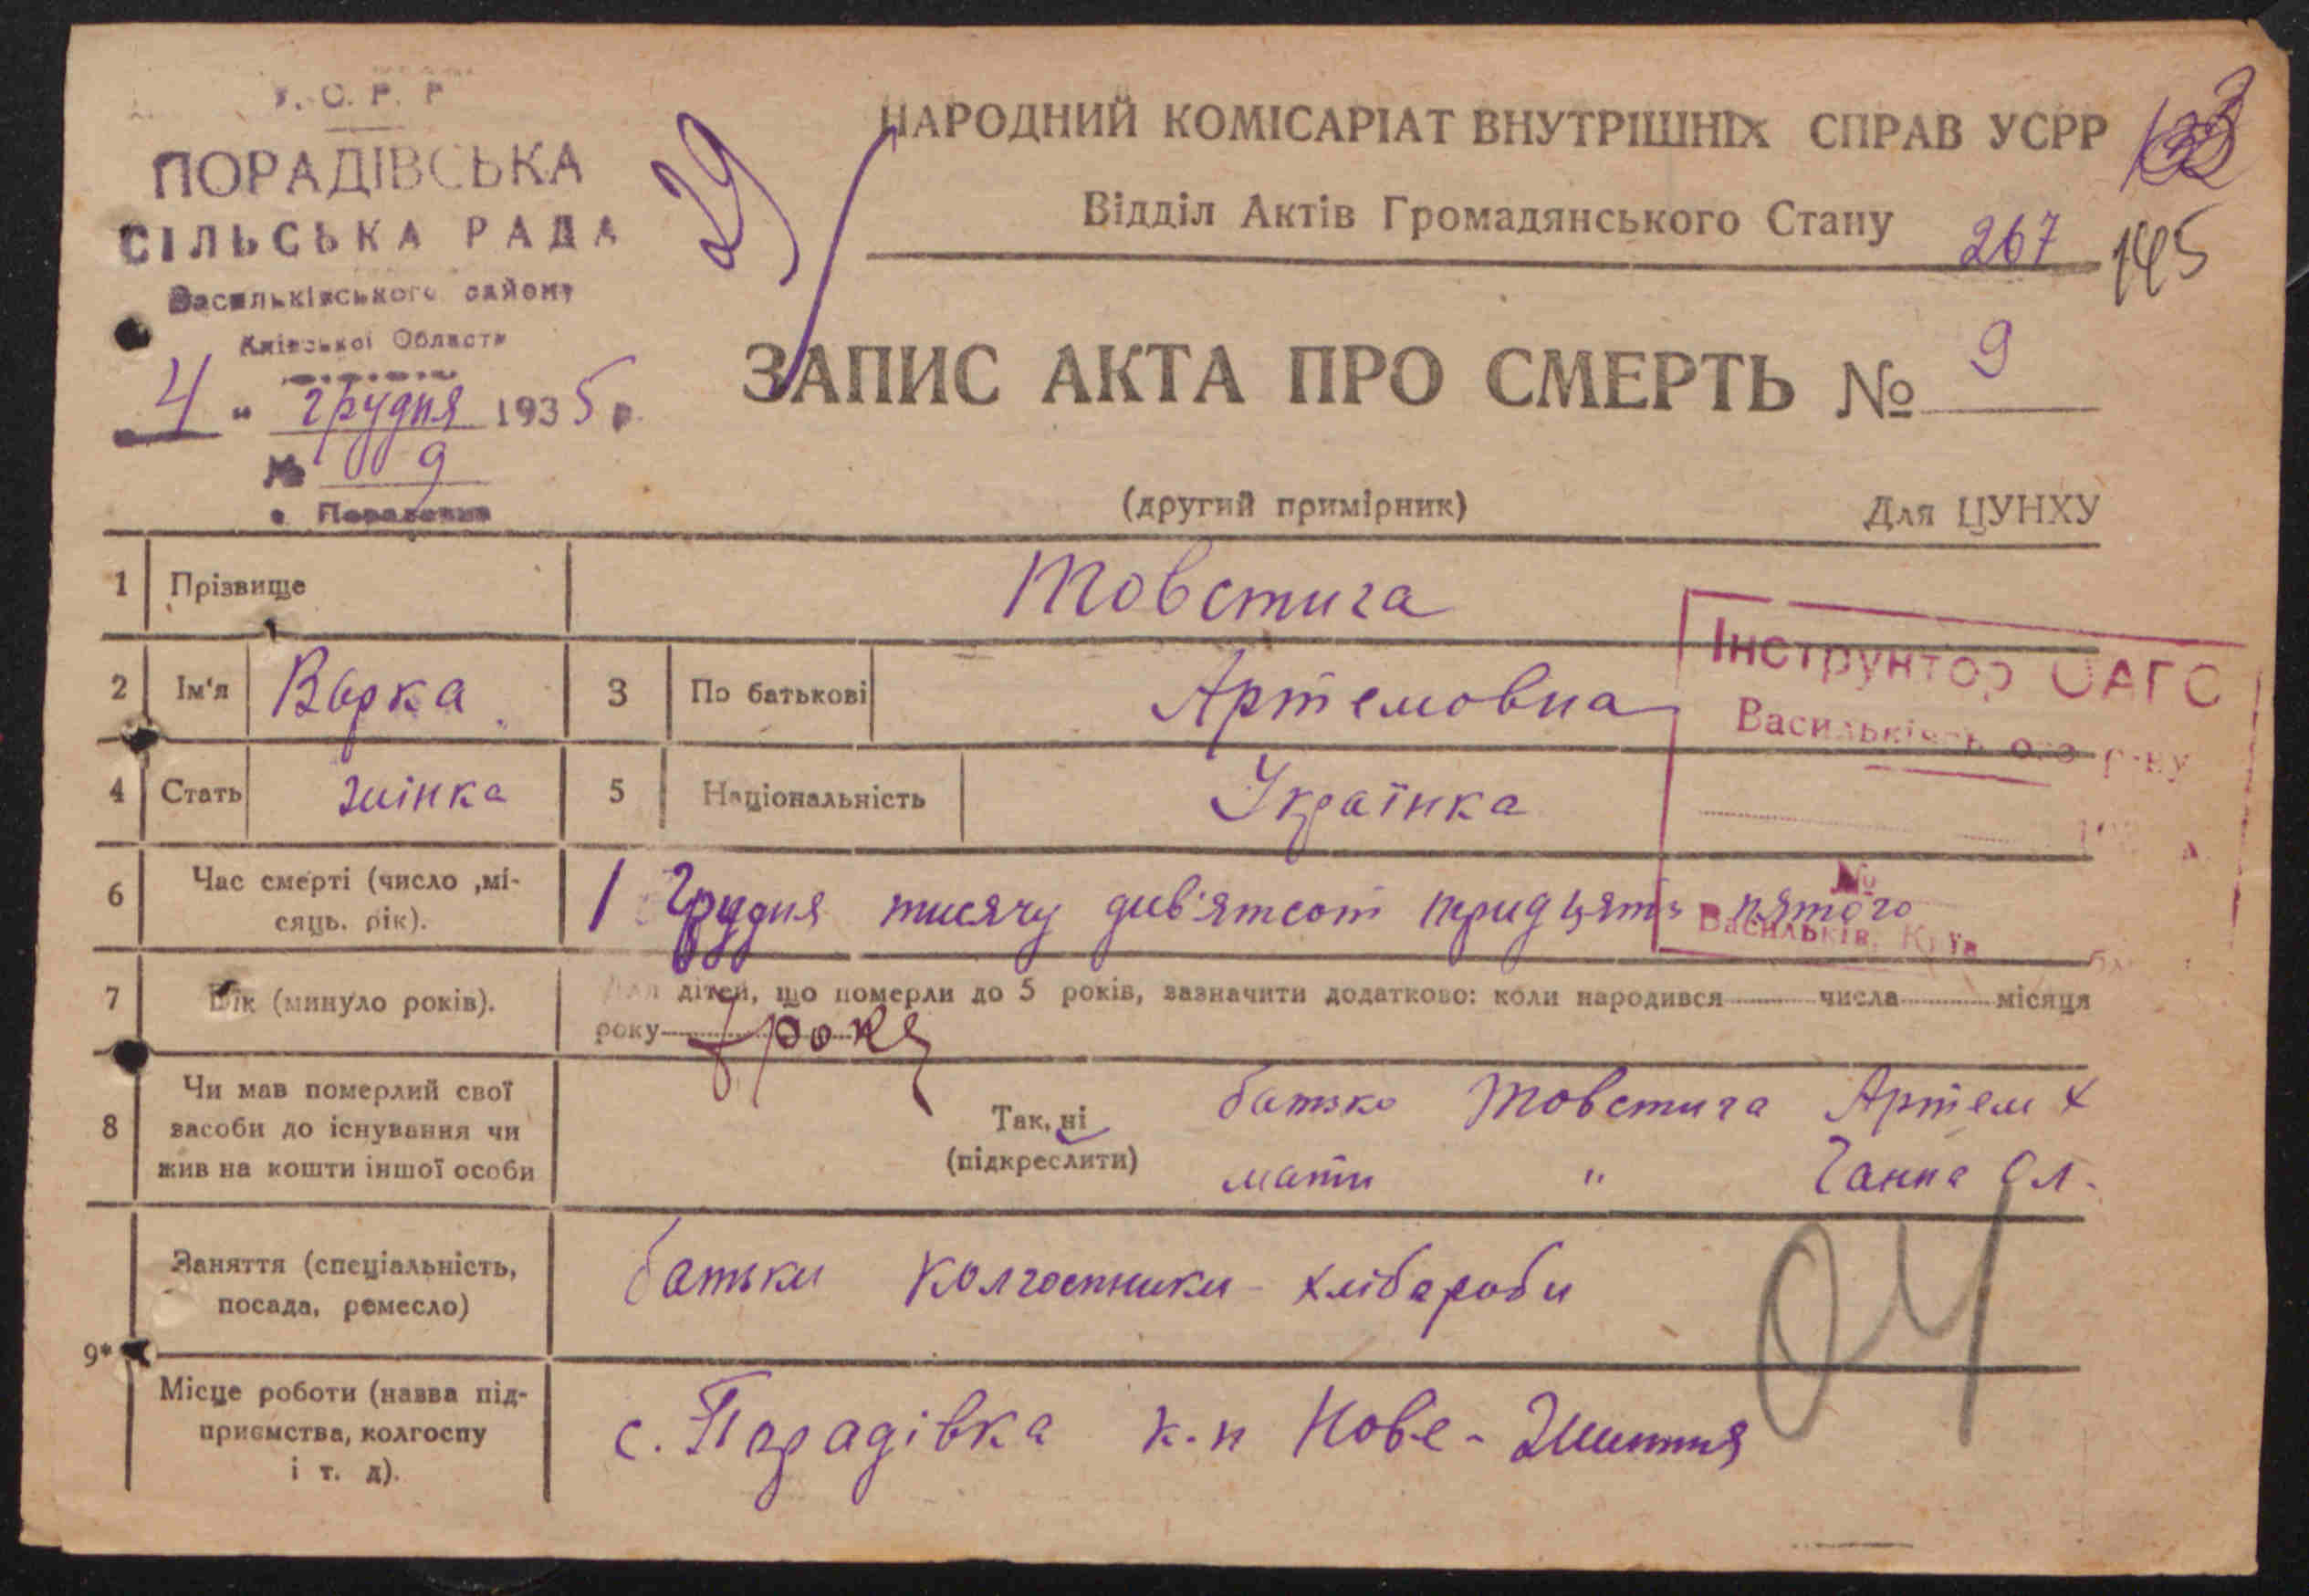 У. С. Р. Р
ПОРАДІВСЬКА
СІЛЬСЬКА РАДА
Васильківського району
Київської Области
4 " грудня 1935 р.
№ 9
с Порадовка
29
НАРОДНИЙ КОМІСАРІАТ ВНУТРІШНІХ СПРАВ УСРР
Відділ Актів Громадянського Стану
267
145
ЗАПИС АКТА ПРО СМЕРТЬ № 9
(другий примірник)
Для ЦУНХУ
1 Прізвище Товстига
2 Ім'я Варка 3 По батькові Артемовна
Інструктор ОАГС
Васильківського р-ну
4 Стать жінка 5 Національність Українка
6 Час смерті (число ,мі-
сяць. рік).
1 Грудня тисячу дев'ятсот тридцять пятого
№
Васильків, Київ
7 Вік (минуло років).
Для дітей, що померли до 5 років, зазначити додатково: коли народився числа місяця
року роки
8 Чи мав померлий свої
засоби до існування чи
жив на кошти іншої особи
Так, ні
(підкреслити)
батько Товстига Артем Х
мати " Ганна Ол.
9* Заняття (спеціальність,
посада, ремесло)
батьки колгоспники - хлібароби
04
Місце роботи (назва під-
приємства, колгоспу
і т. д).
с. Парадівка к-п Нове - Життя